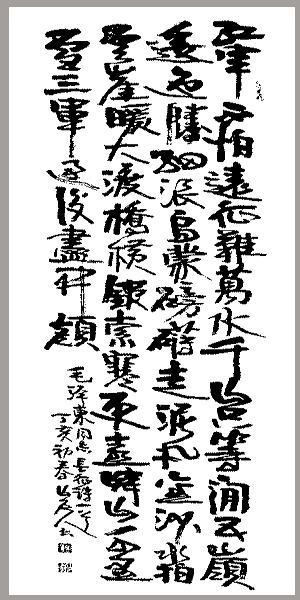 紅軍不怕遠征難萬水千山只等閒五嶺
逶迤騰細浪烏蒙磅礴走泥丸金沙水拍
雲崖暖大渡橋橫鐵索寒更喜岷山千里
雪三軍過後盡開顏
毛澤東同志長征詩一首
丁亥初春